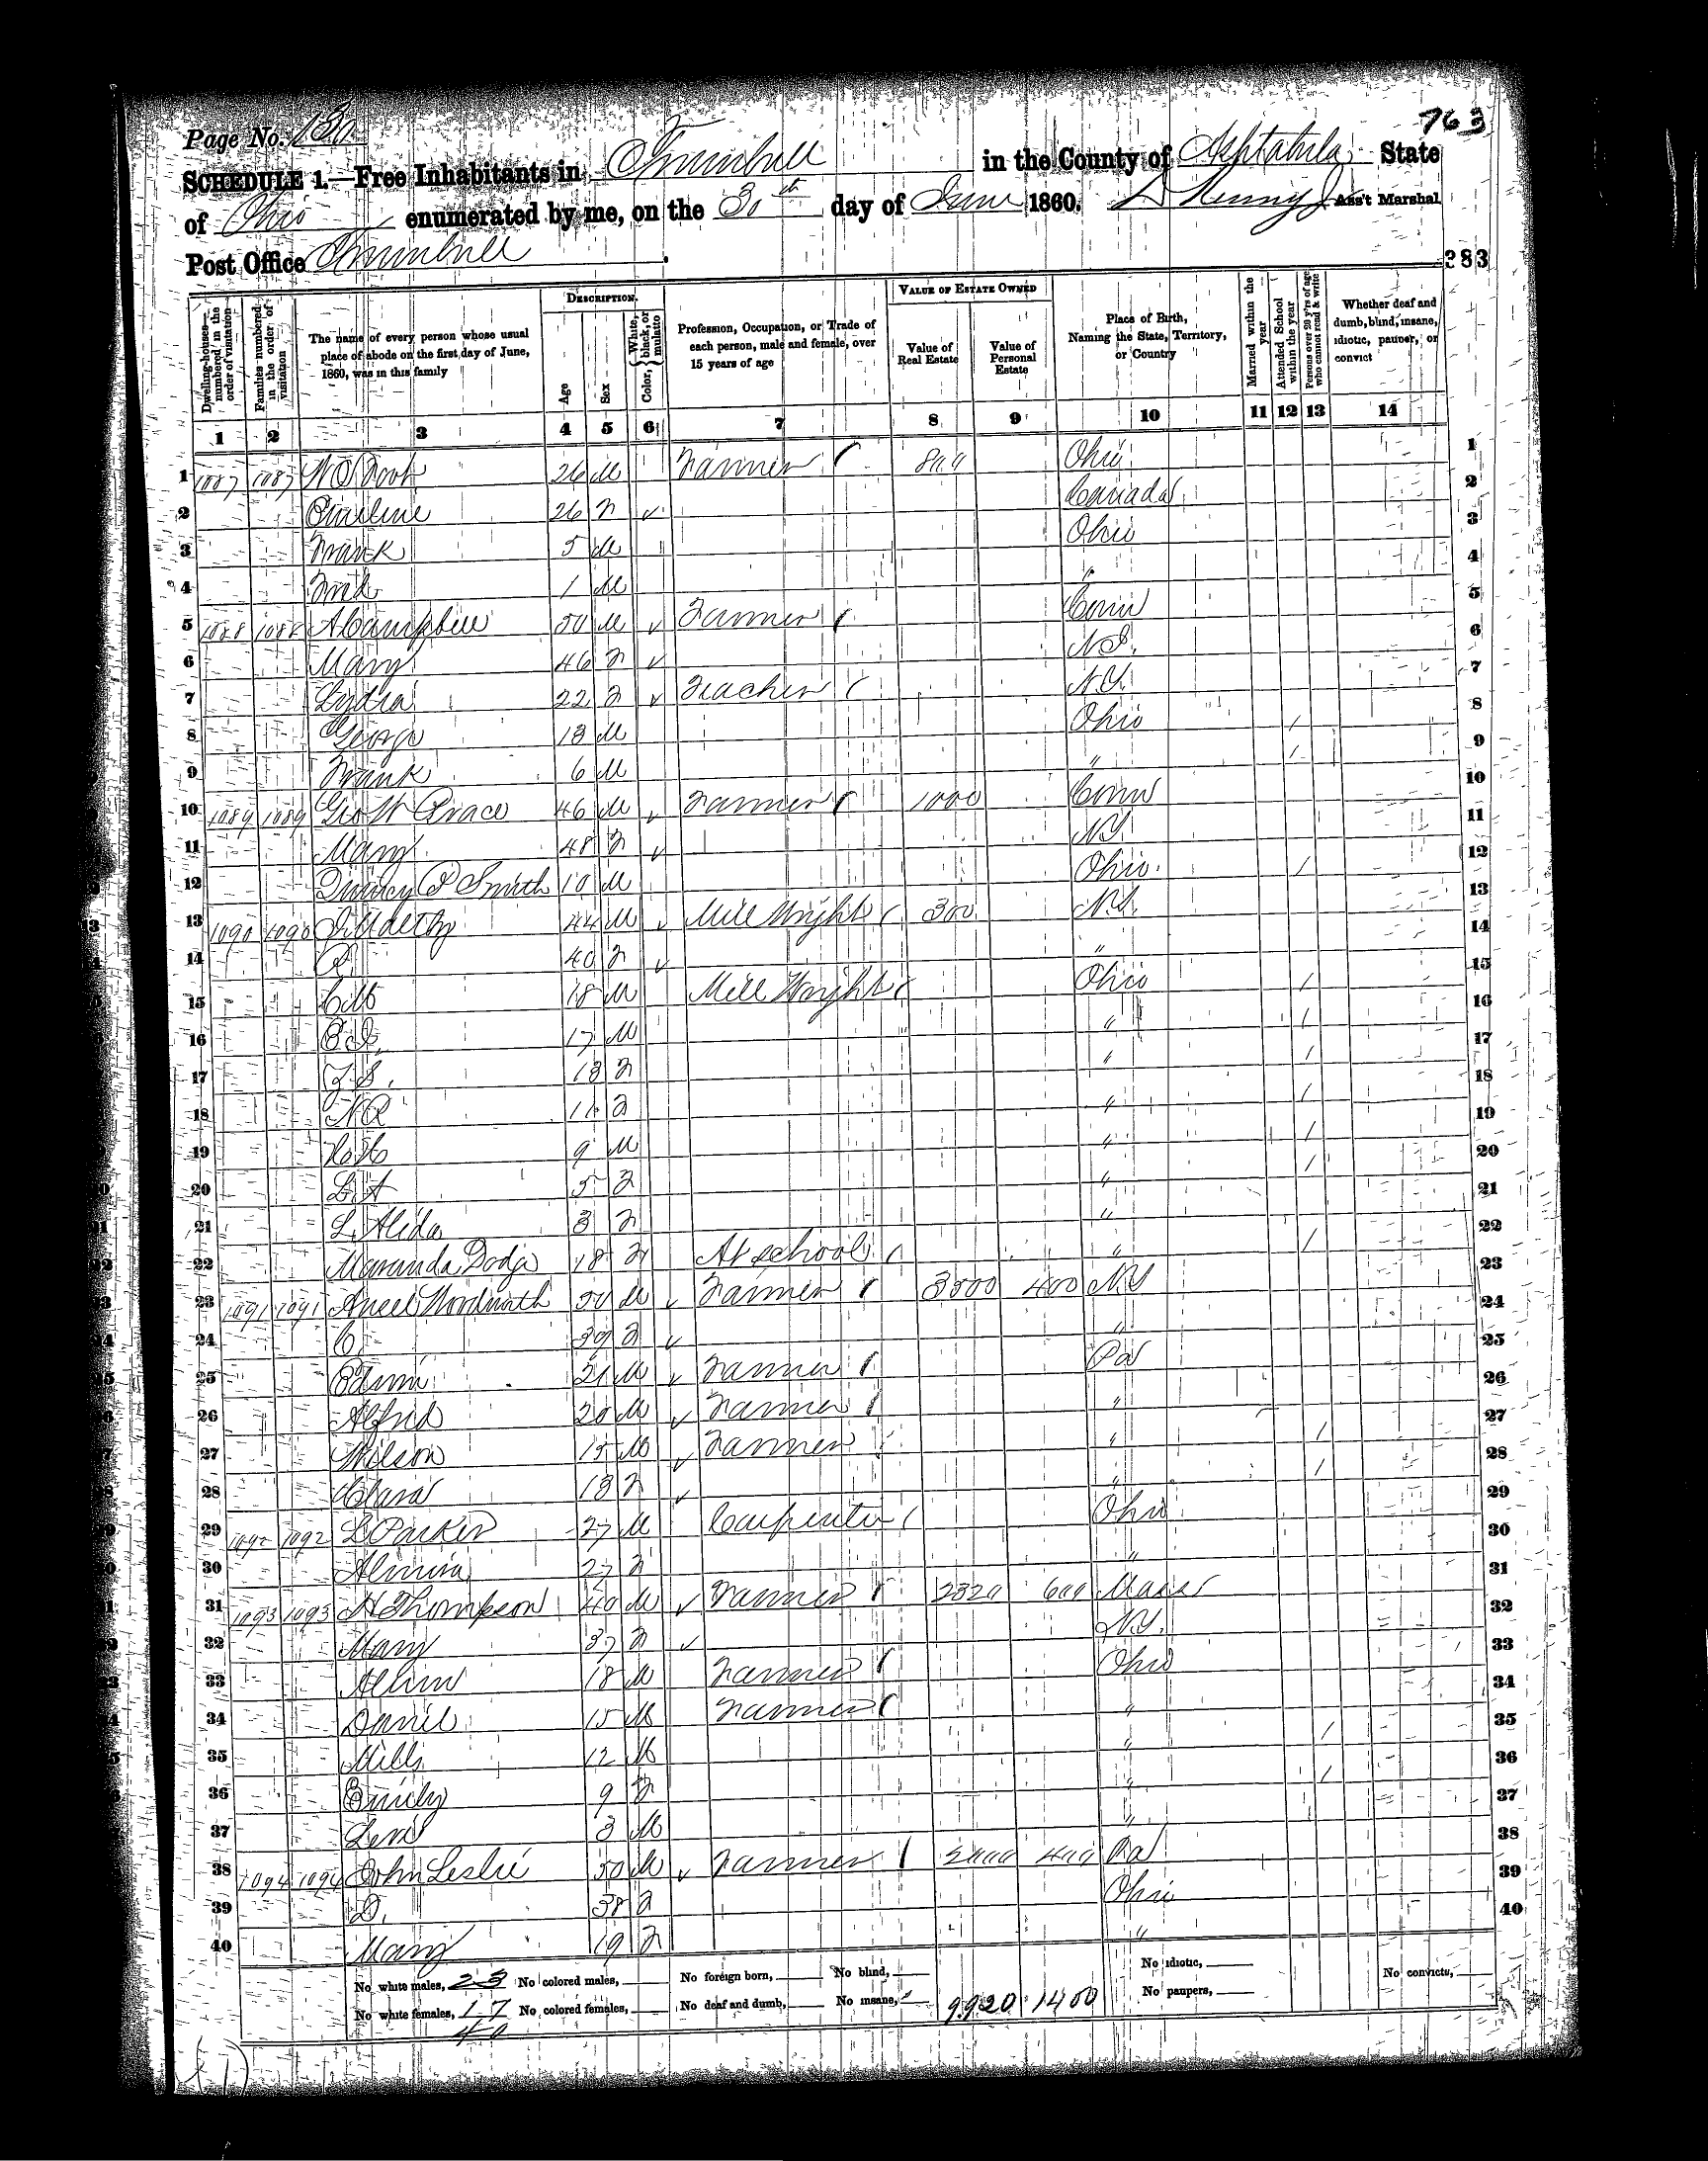 763
Page No. 130
SCHEDULE 1.—Free Inhabitants in Trumbull in the County of Ashtabula State
of Ohio enumerated by me, on the 30th day of June 1860. Ass't Marshal
Post Office Trumbull.
383
Dwelling-houses—numbered in the order of visitation
Families numbered in the order of visitation
The name of every person whose usual place of abode on the first day of June, 1860, was in this family
DESCRIPTION.
Age
Sex
Color, White, black, or mulatto
Profession, Occupation, or Trade of each person, male and female, over 15 years of age
VALUE OF ESTATE OWNED
Value of Real Estate
Value of Personal Estate
Place of Birth, Naming the State, Territory, or Country
Married within the year
Attended School within the year
Persons over 20 y'rs of age who cannot read & write
Whether deaf and dumb, blind, insane, idiotic, pauper, or convict
1 2 3 4 5 6 7 8 9 10 11 12 13 14
1 1087 1087 26 M Farmer 800 Ohio 1
2 26 F Canada 2
3 Frank 5 M Ohio 3
4 1 M " 4
5 1088 1088 A Campbell 50 M Farmer Conn 5
6 Mary 46 F 6
7 Lydia 22 F Teacher N.Y. 7
8 George 13 M Ohio / 8
9 Frank 6 M " / 9
10 1089 1089 Geo W 46 M Farmer 1000 Conn 10
11 Mary 48 F N.Y. 11
12 Quincy P Smith 10 M Ohio / 12
13 1090 1090 44 M Mill Wright 300 N.Y. 13
14 40 F " 14
15 18 M Mill Wright Ohio / 15
16 17 M " / 16
17 13 F " / 17
18 11 F " / 18
19 9 M " / 19
20 L A 5 F " / 20
21 L. Alida 3 F " 21
22 Maranda Dodge 18 F At school " / 22
23 1091 1091 50 M Farmer 3500 400 N.Y 23
24 C. 39 F " 24
25 Edwin 21 M Farmer Pa 25
26 Alfred 20 M Farmer " 26
27 Wilson 15 M Farmer " / 27
28 Clara 13 F " / 28
29 1092 1092 L Parker 27 M Carpenter Ohio 29
30 Almira 27 F " 30
31 1093 1093 H Thompson 40 M Farmer 2320 600 Mass 31
32 Mary 37 F N.Y. 32
33 18 M Farmer Ohio 33
34 15 M Farmer " 34
35 Mills 12 M " / 35
36 Emily 9 F " / 36
37 Levi 3 M " 37
38 1094 1094 John Leslie 50 M Farmer 2000 400 Pa 38
39 D. 38 F Ohio 39
40 Mary 19 F " 40
No white males, 23 No colored males, No foreign born, No blind, No idiotic, No convicts,
No white females, 17 No colored females, No deaf and dumb, No insane, 9920 1400 No paupers,
40